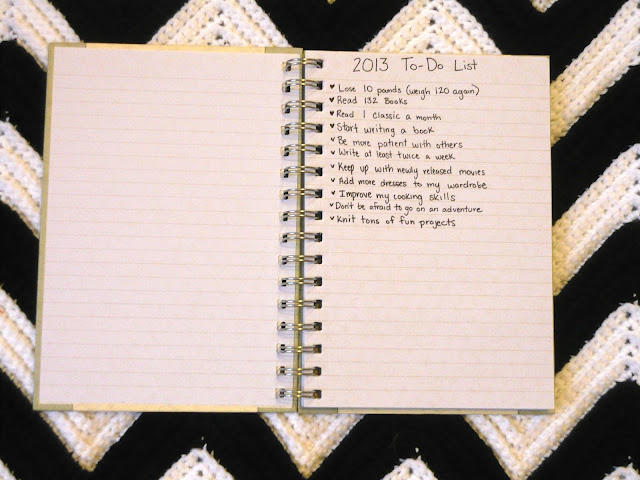 2013 To-Do List
♥ Lose 10 pounds (weigh 120 again)
♥ Read 132 Books
♥ Read 1 classic a month
♥ Start writing a book
♥ Be more patient with others
♥ Write at least twice a week
♥ Keep up with newly released movies
♥ Add more dresses to my wardrobe
♥ Improve my cooking skills
♥ Don't be afraid to go on an adventure
♥ Knit tons of fun projects